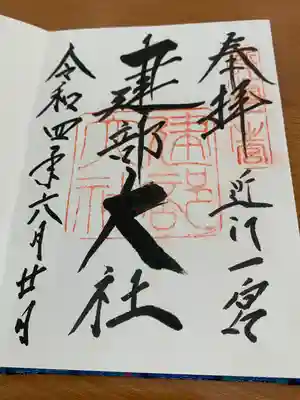 奉拝
近江一宮
建部大社
令和四年六月廿日
建部大社